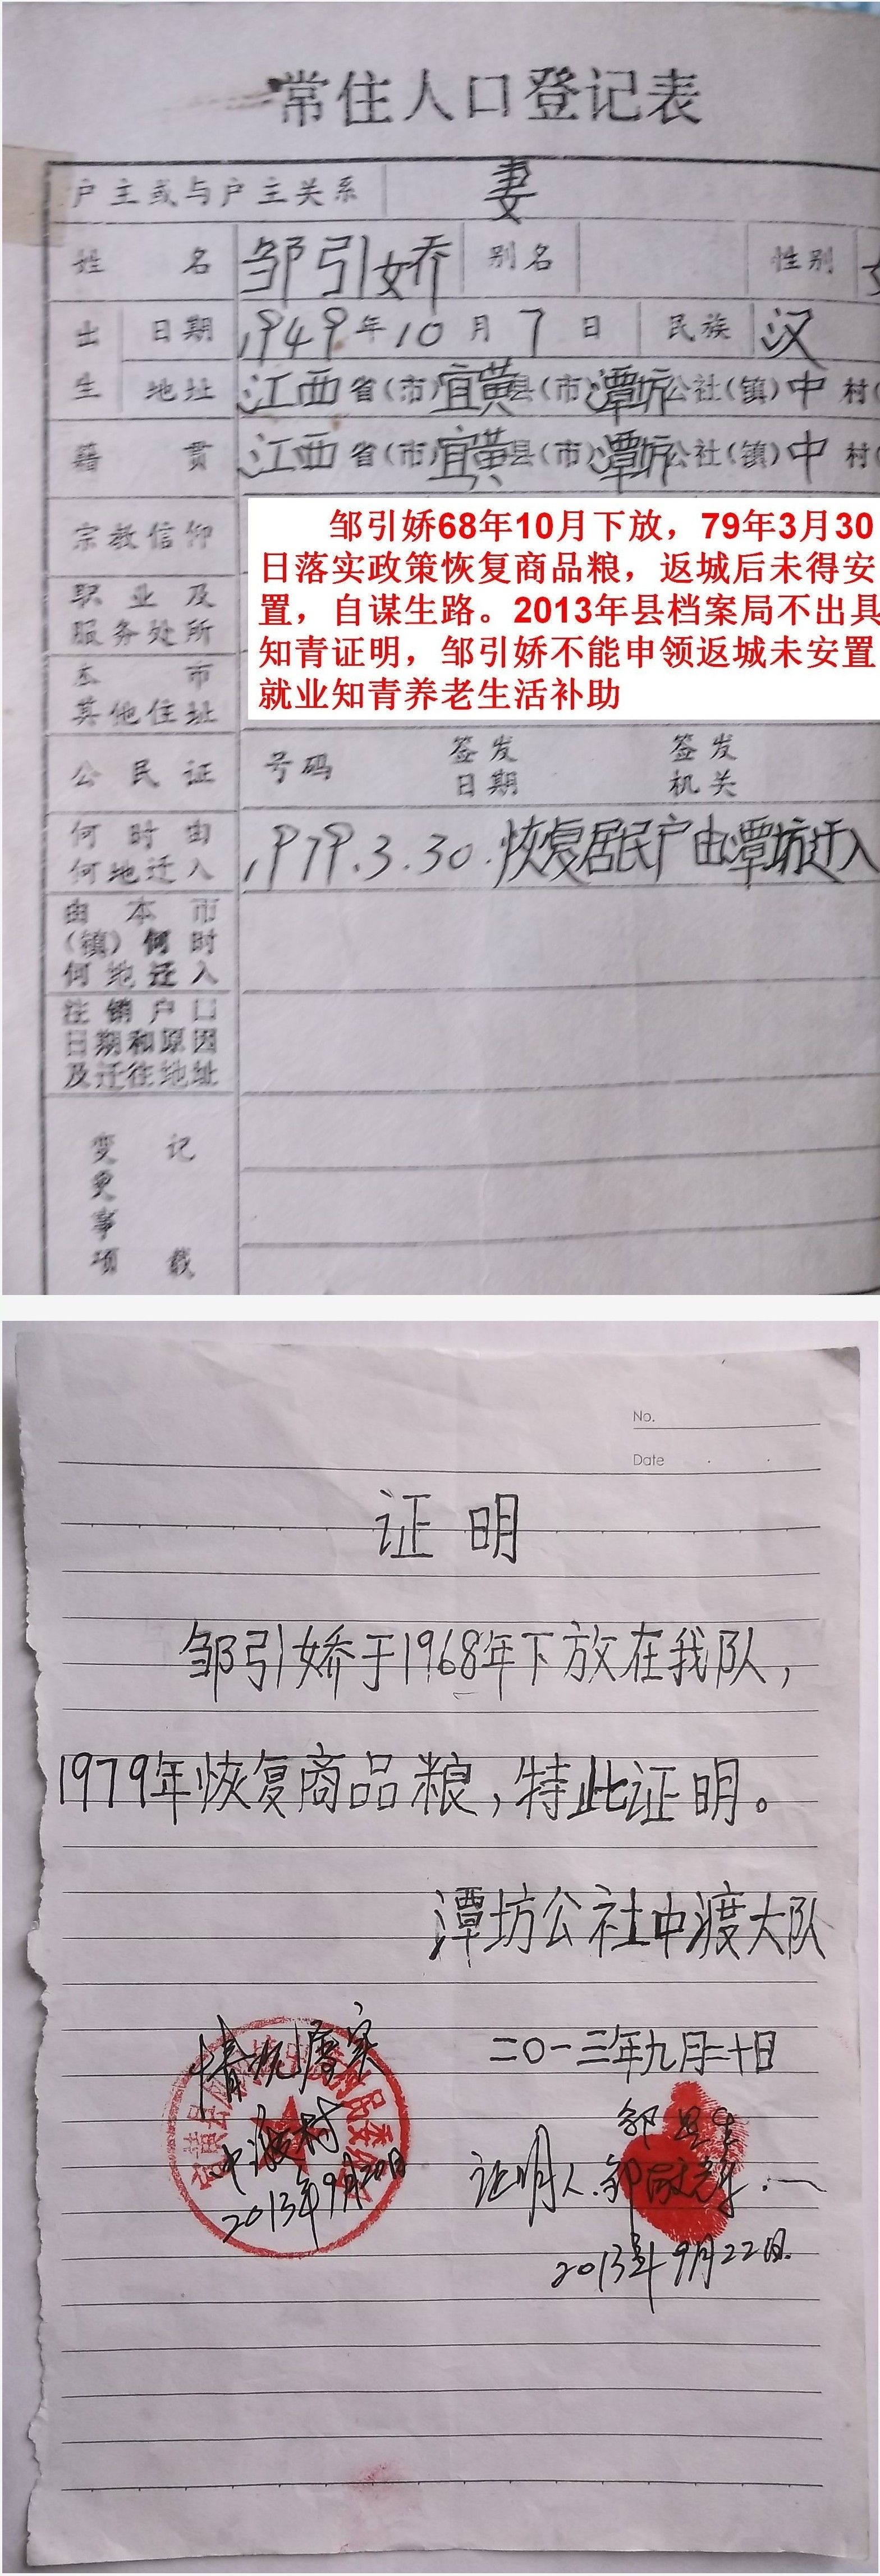 常住人口登记表
户主或与户主关系 妻
姓名 邹引娇 别名 性别
出生 日期 1949年10月7日 民族 汉
地址 江西省(市)宜黄县(市)潭坊公社(镇)中村(
籍贯 江西省(市)宜黄县(市)潭坊公社(镇)中村(
宗教信仰
邹引娇68年10月下放，79年3月30
日落实政策恢复商品粮，返城后未得安
置，自谋生路。2013年县档案局不出具
知青证明，邹引娇不能申领返城未安置
就业知青养老生活补助
职业及
服务处所
本市
其他住址
公民证 号码 签发日期 签发机关
何时由
何地迁入 1979.3.30.恢复居民户由潭坊迁入
由本市
(镇)何时
何地迁入
注销户口
日期和原因
及迁往地址
变更事项记载
No.
Date
证明
邹引娇于1968年下放在我队，
1979年恢复商品粮，特此证明。
潭坊公社中渡大队
二〇一三年九月二十日
情况属实
中渡村
2013年9月20日
证明人：邹
2013年9月22日.